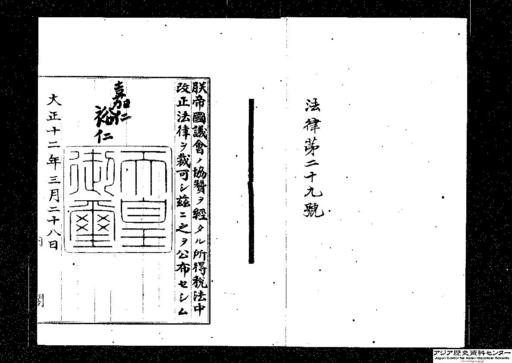 法律第二十九號
朕帝國議會ノ協贊ヲ經タル所得稅法中
改正法律ヲ裁可シ茲ニ之ヲ公布セシム
嘉仁
裕仁
天皇
御璽
大正十二年三月二十八日
アジア歴史資料センター
Japan Center for Asian Historical Records